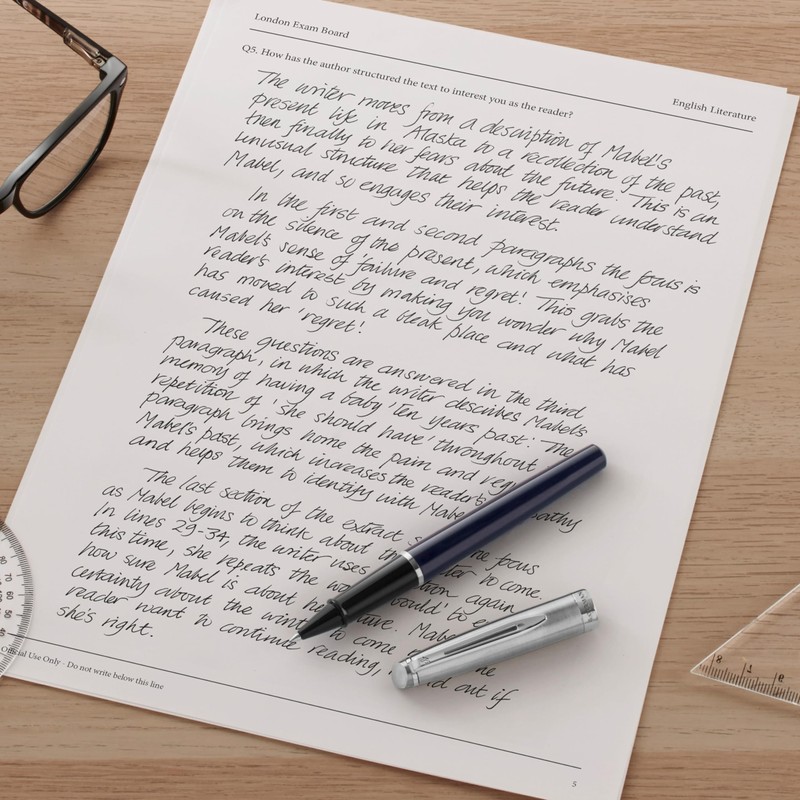 London Exam Board
English Literature
Q5. How has the author structured the text to interest you as the reader?
The writer moves from a description of Mabel's
present life in Alaska to a recollection of the past,
then finally to her fears about the future. This is an
unusual structure that helps the reader understand
Mabel, and so engages their interest.
In the first and second paragraphs the focus is
on the silence of the present, which emphasises
Mabel's sense of 'failure and regret'. This grabs the
reader's interest by making you wonder why Mabel
has moved to such a bleak place and what has
caused her 'regret'.
These questions are answered in the third
paragraph, in which the writer describes Mabel's
memory of having a baby 'ten years past'. The
repetition of 'she should have' throughout
paragraph brings home the pain and
Mabel's past, which increases the reader's
and helps them to identify with
The last section of the extract focus
as Mabel begins to think about to come.
In lines 29-34, the writer uses again
this time, she repeats the would' to
how sure Mabel is about
certainty about the to come
reader want to continue reading, out if
she's right.
Official Use Only - Do not write below this line
5
8 1 9
80 70 60 50 40